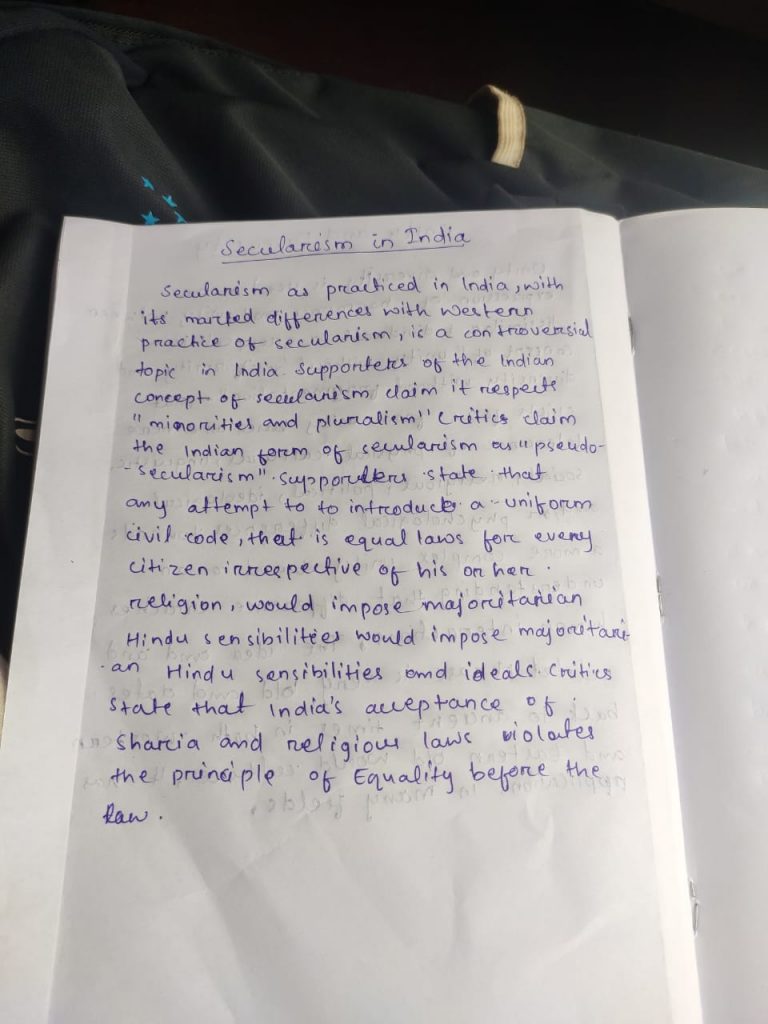 Secularism in India
Secularism as practiced in India, with
its marked differences with Western
practice of secularism, is a controversial
topic in India. Supporters of the Indian
concept of secularism claim it respects
"minorities and pluralism" Critics claim
the Indian form of secularism as "pseudo-
-secularism". Supporters state that
any attempt to to introduce a uniform
civil code, that is equal laws for every
citizen irrespective of his or her
religion, would impose majoritarian
Hindu sensibilities would impose majoritari-
an Hindu sensibilities and ideals. Critics
state that India's acceptance of
Sharia and religious laws violates
the principle of Equality before the
law.